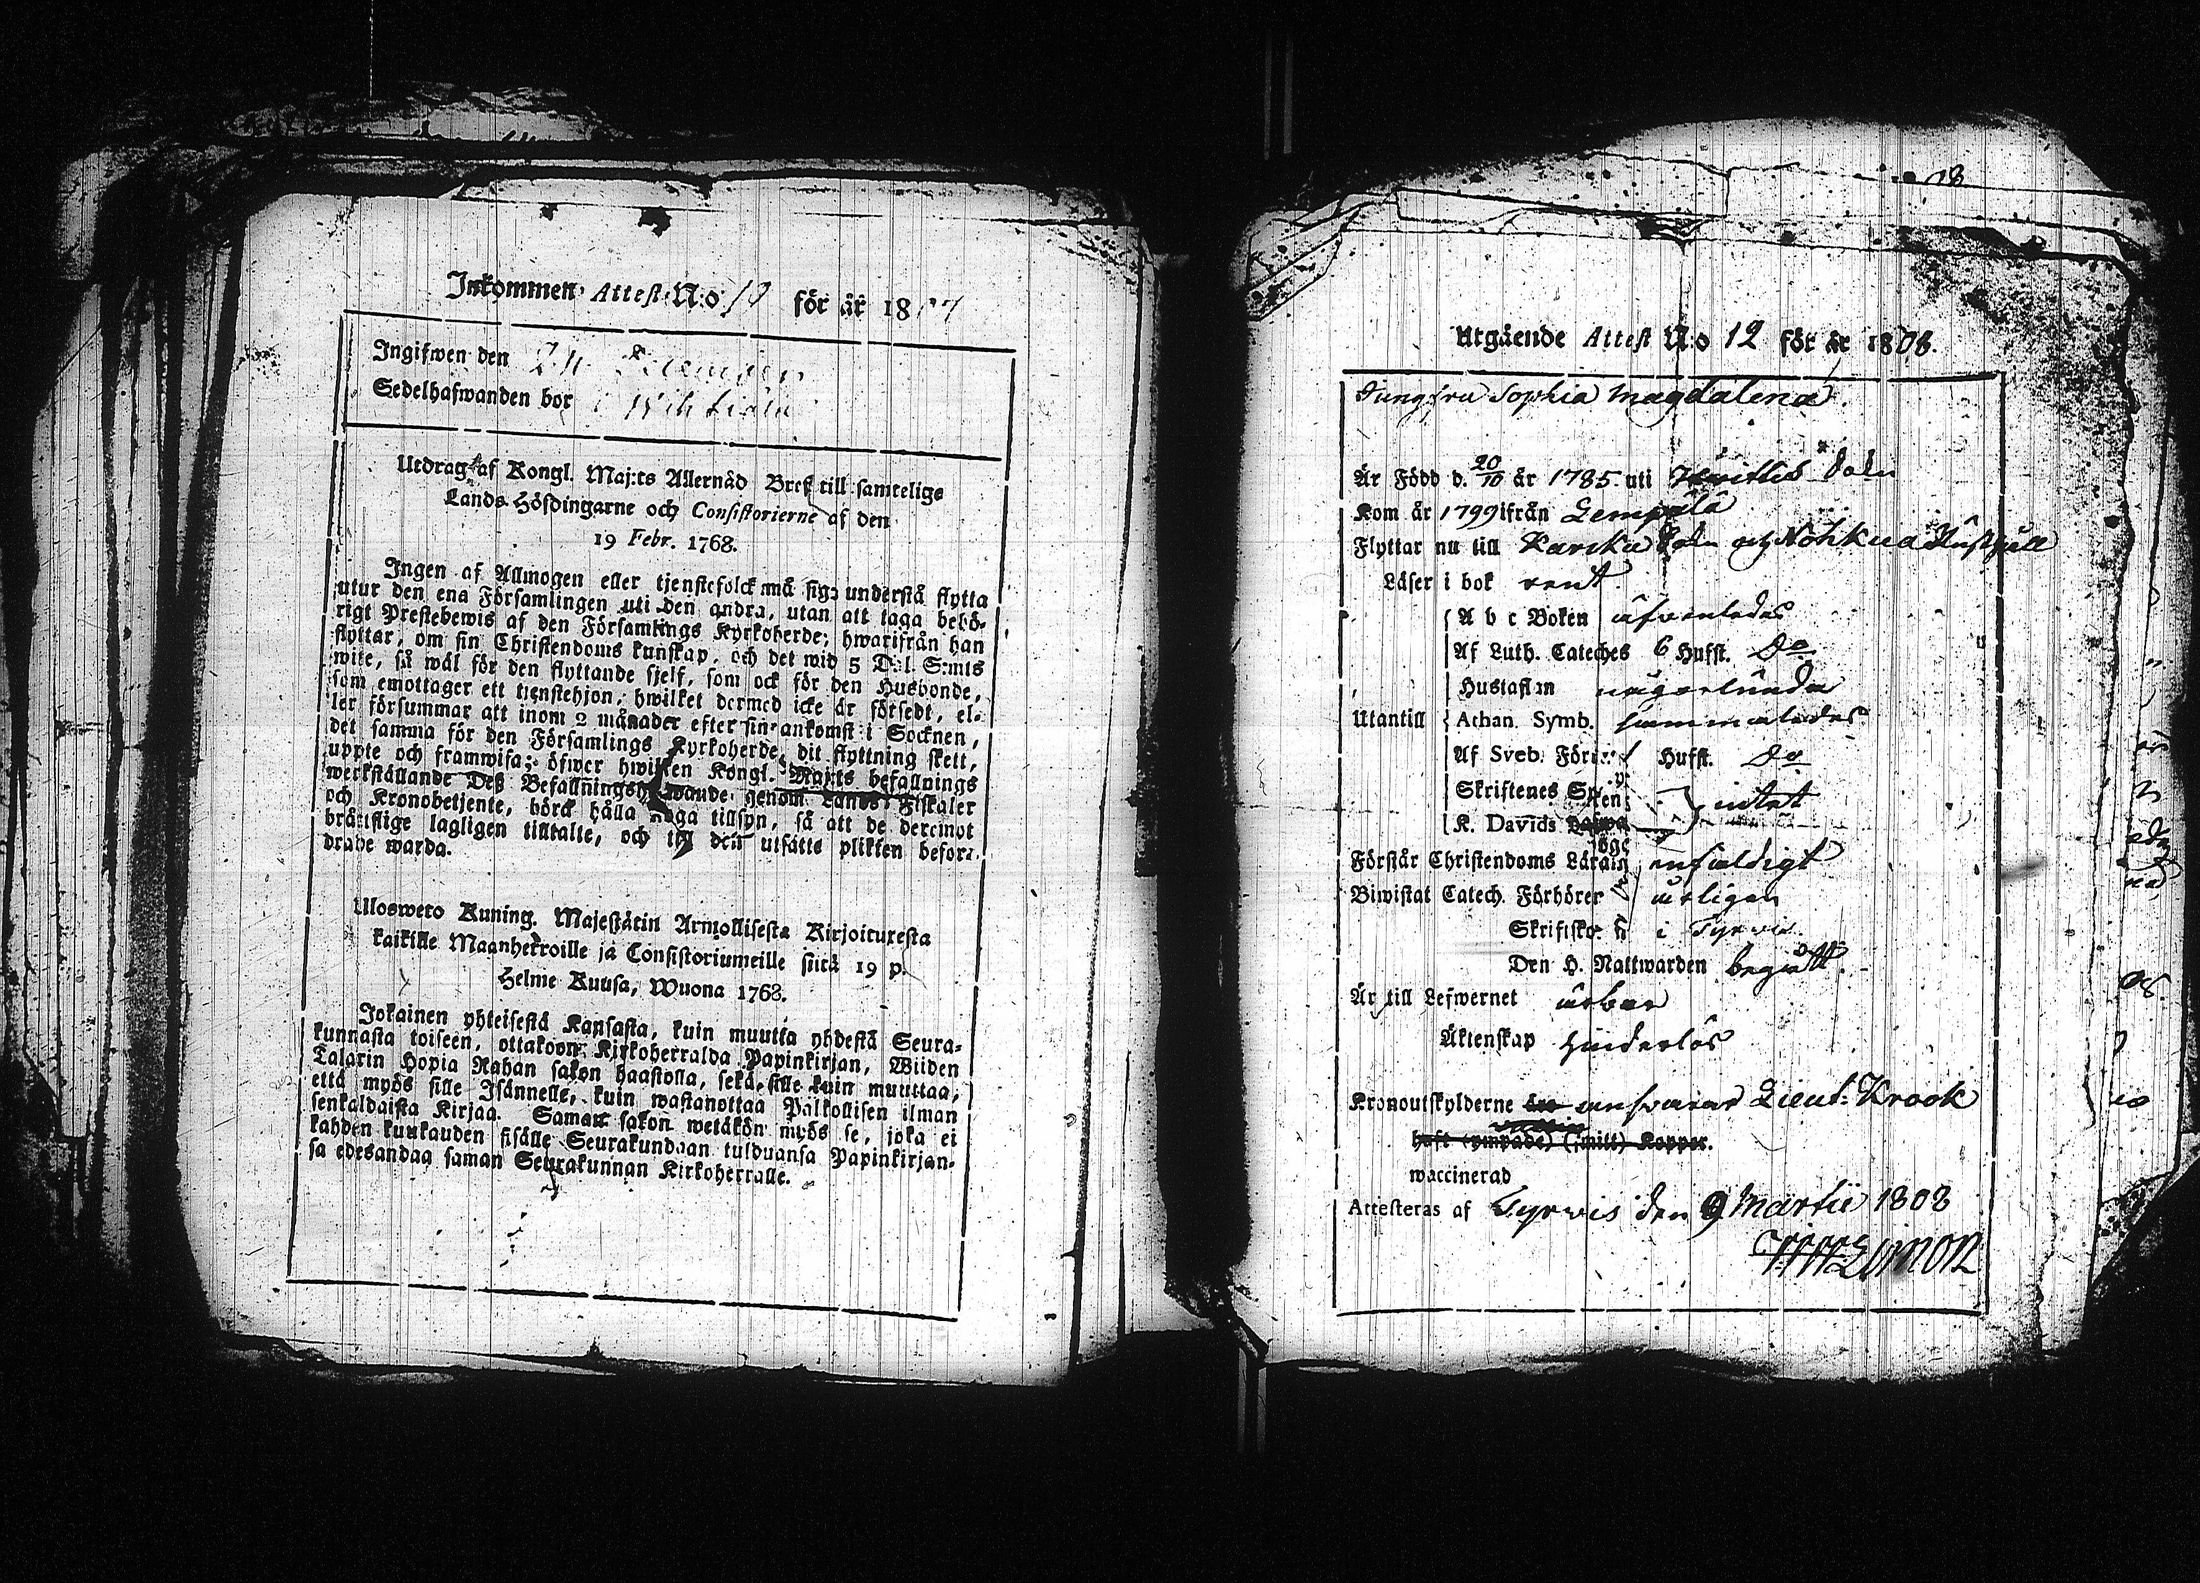 Inkommen Attest N:o 19 för år 1807
Ingifwen den
Sedelhafwanden bor i Wihtiälä
Utdrag af Kongl. Maj:ts Allernåd Bref till samtelige
Lands Höfdingarne och Consistorierne af den
19 Febr. 1768.
Ingen af Allmogen eller tjenstefolck må sigo understå flytta
utur den ena Församlingen uti den andra, utan att taga behö-
rigt Prestebewis af den Församlings Kyrkoherde, hwarifrån han
flyttar, om sin Christendoms kunskap, och det wid 5 Dal. S:mts
wite, så wäl för den flyttande sjelf, som ock för den Husbonde,
som emottager ett tjenstehjon, hwilket dermed icke är försedt, el-
ler försummar att inom 2 månader efter sin ankomst i Socknen,
det samma för den Församlings Kyrkoherde, dit flyttning skett,
uppte och framwisa; öfwer hwilken Kongl. Maj:ts befallnings
werkställande Deß Befallningshafwande genom Lands Fiskaler
och Kronobetjente, börck hålla noga tillsyn, så att de deremot
bråttslige lagligen tilltalte, och till den utsatte plikten beford-
drade warda.
Ulosweto Kuning. Majestätin Armollisesta Kirjoituxesta
kaikille Maanherroille ja Consistoriumeille siitä 19 p.
Helme Kuusa, Wuona 1768.
Jokainen yhteisestä Kansasta, kuin muutta yhdestä Seura-
kunnasta toiseen, ottakoon Kirkoherralda Papinkirjan, Wiiden
Talarin Hopia Rahan sakon haastolla, sekä sille kuin muuttaa,
että myös sille Isännelle, kuin wastanottaa Palkollisen ilman
senkaldaista Kirjaa. Saman sakon wetäkön myös se, joka ei
kahden kuukauden sisälle Seurakundaan tulduansa Papinkirjan-
sa edesandaa saman Seurakunnan Kirkoherralle.
Utgående Attest N:o 12 för år 1808.
Jungfru Sophia Magdalena.
Är Född d. 20/10 år 1785 uti Sokn
Kom år 1799 ifrån Lempälä
Flyttar nu till Karcku Sokn och Nohkua Rusthåll
Läser i bok rent
A b c Boken äfvenledes
Af Luth. Cateches 6 Hufst. Do
Hustaflan någorlunda
Utantill Athan. Symb. sammaledes
Af Sveb. Förk. Hufst. Do
Skriftenes Språk
K. Davids intet
Förstår Christendoms Läran enfaldigt
Biwistat Catech. Förhörer årligen
Skriftsko. i Tyrvis
Den H. Nattwarden begått.
Är till Lefwernet ärbar
Äktenskap hinderlös
Kronoutskylderne ansvarar Lieut: Krook
haft (ympade) (smitt) Koppor.
waccinerad
Attesteras af Tyrvis den 9 Martii 1808